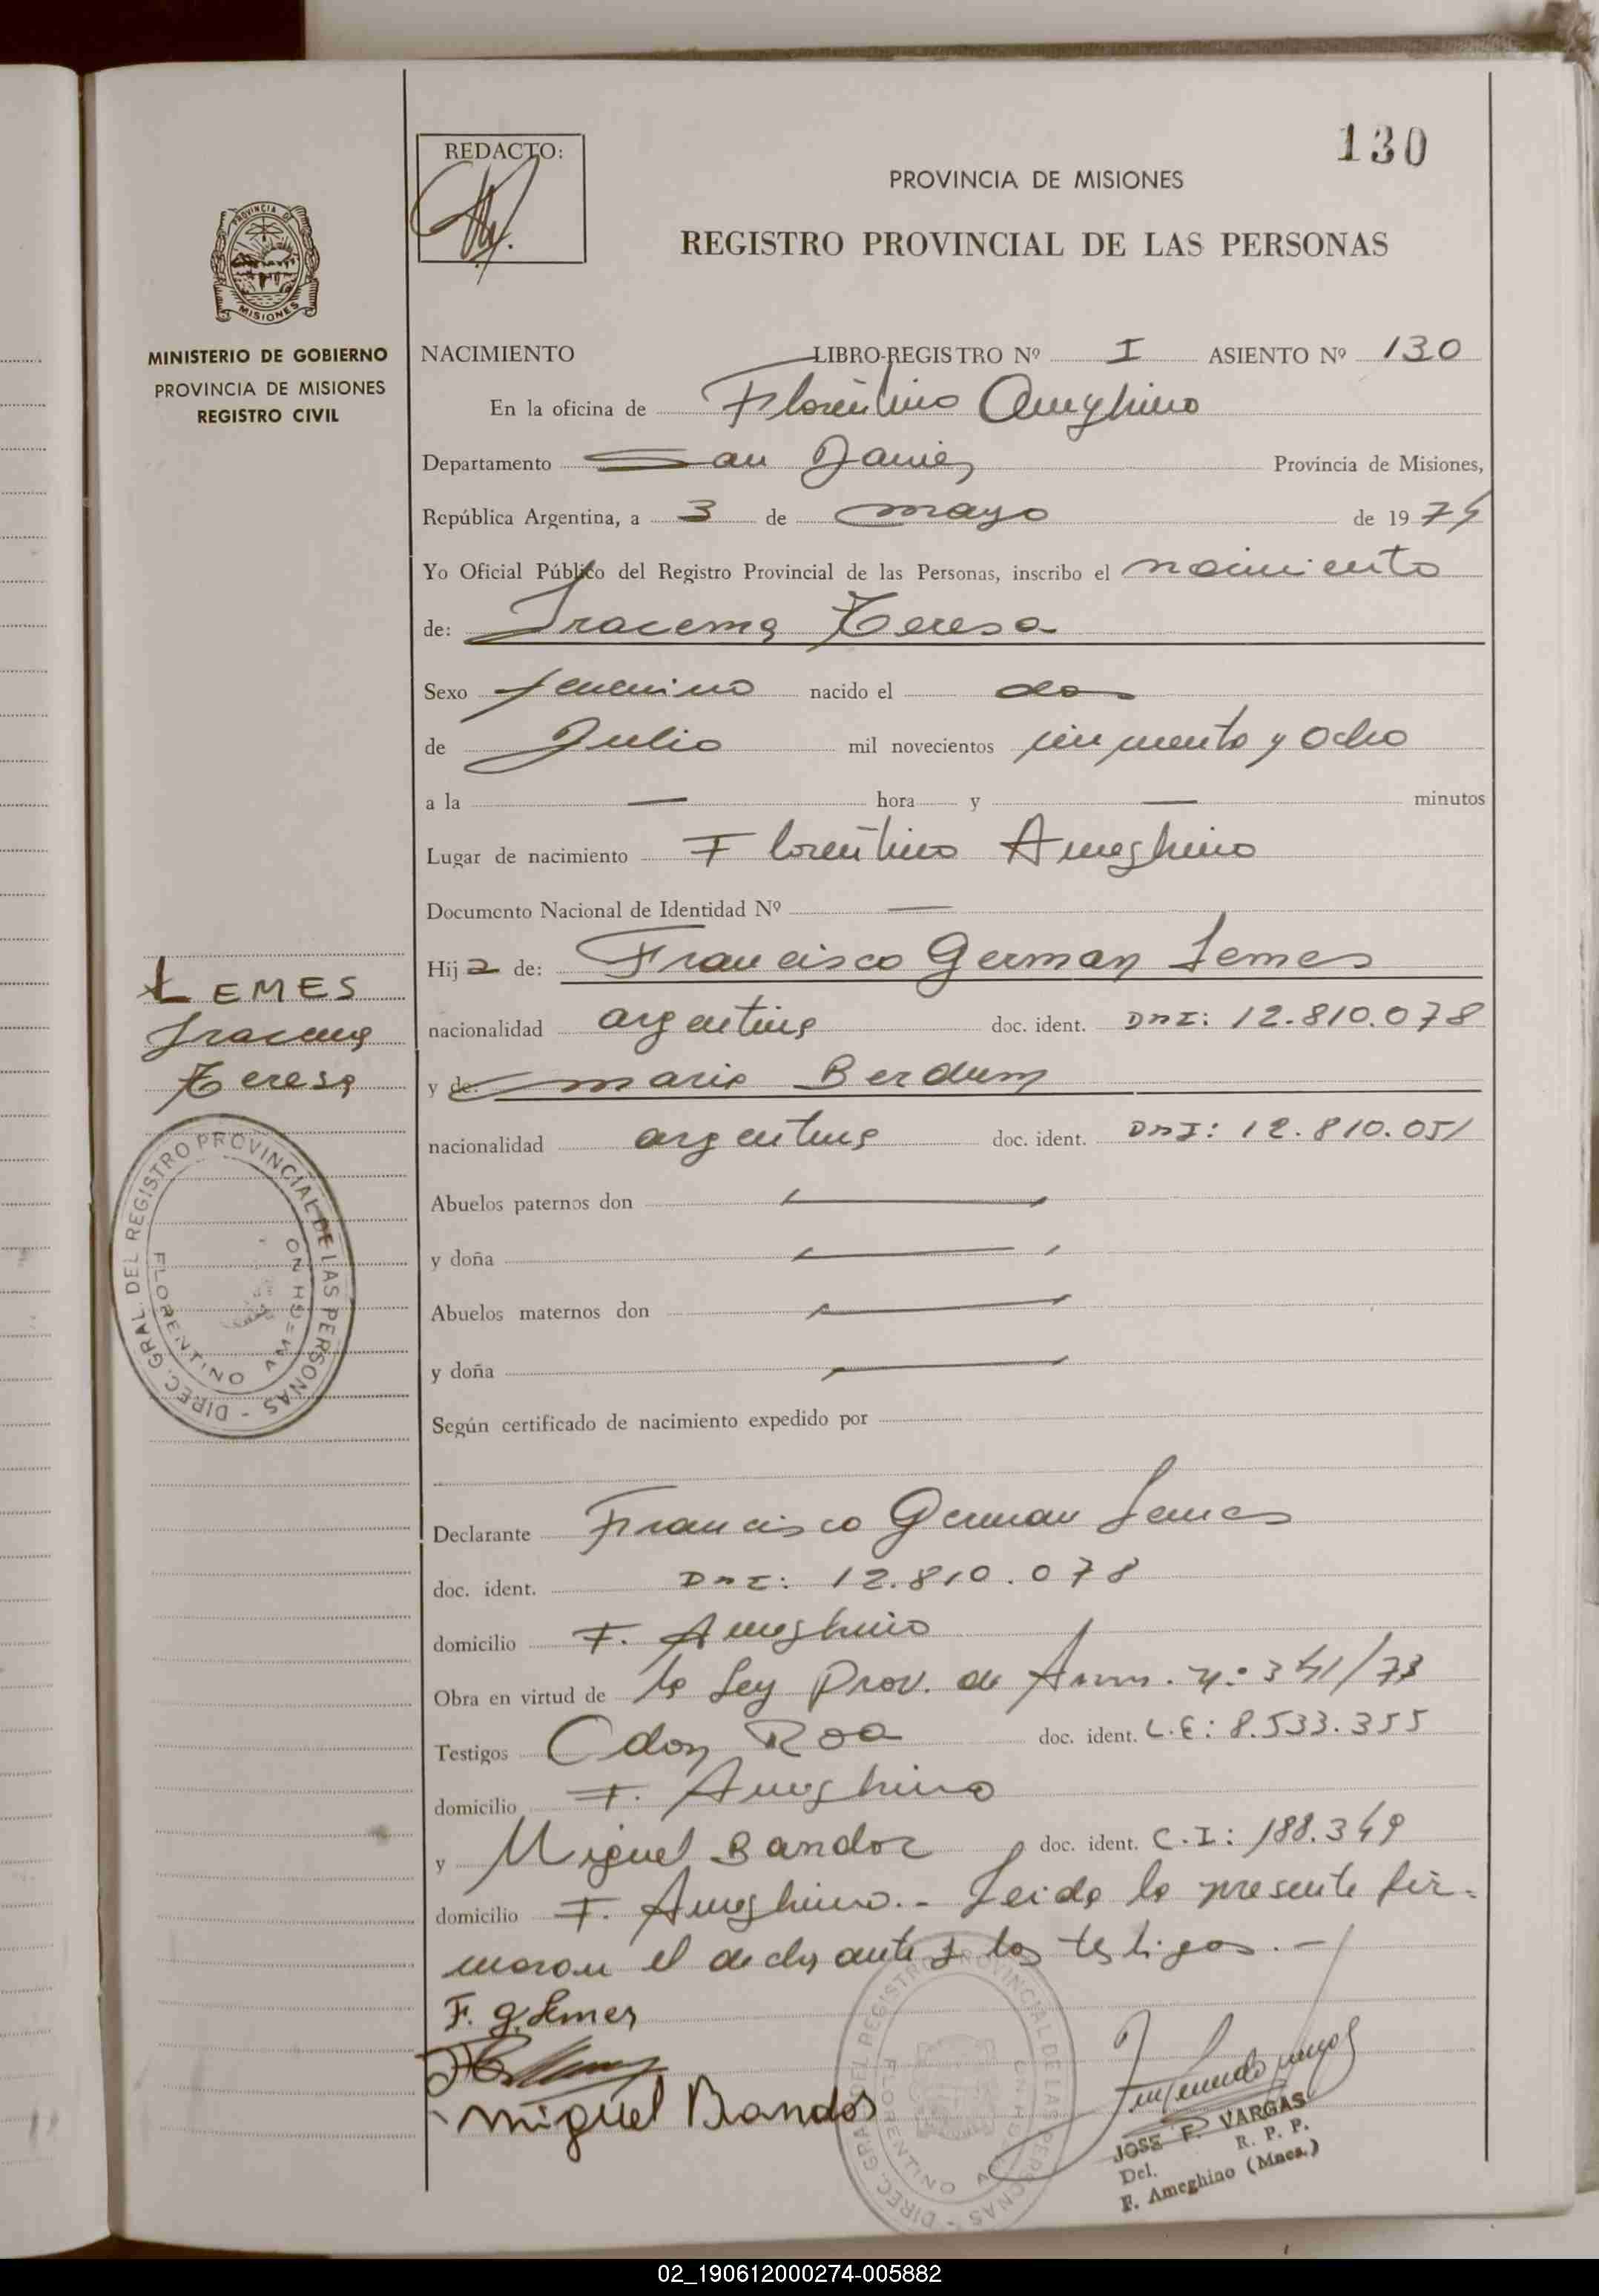 130
REDACTO:
PROVINCIA DE MISIONES
REGISTRO PROVINCIAL DE LAS PERSONAS
PROVINCIA DE
MISIONES
MINISTERIO DE GOBIERNO
PROVINCIA DE MISIONES
REGISTRO CIVIL
NACIMIENTO LIBRO-REGISTRO Nº I ASIENTO Nº 130
En la oficina de Florentino Ameghino
Departamento San Javier Provincia de Misiones,
República Argentina, a 3 de mayo de 1974
Yo Oficial Público del Registro Provincial de las Personas, inscribo el nacimiento
de: Iracema Teresa
Sexo femenino nacido el dos
de Julio mil novecientos cincuenta y ocho
a la — hora y — minutos
Lugar de nacimiento Florentino Ameghino
Documento Nacional de Identidad Nº —
Hija de: Francisco German Lemes
nacionalidad argentina doc. ident. DNI: 12.810.078
y de: Maria Berdum
nacionalidad argentina doc. ident. DNI: 12.810.051
Abuelos paternos don
y doña
Abuelos maternos don
y doña
Según certificado de nacimiento expedido por
Declarante Francisco German Lemes
doc. ident. DNI: 12.810.078
domicilio F. Ameghino
Obra en virtud de la Ley Prov. de Amn. Nº 341/73
Testigos Odon Roa doc. ident. L.E: 8.533.355
domicilio F. Ameghino
y Miguel Bandoz doc. ident. C.I: 188.349
domicilio F. Ameghino.- Leida la presente fir-
maron el declarante y los testigos.-
LEMES
Iracema
Teresa
DIREC. GRAL. DEL REGISTRO PROVINCIAL DE LAS PERSONAS -
FLORENTINO AMEGHINO
F. G. Lemes
Miguel Bandos
DIREC. GRAL. DEL REGISTRO PROVINCIAL DE LAS PERSONAS -
FLORENTINO AMEGHINO
JOSE F. VARGAS
Del. R. P. P.
F. Ameghino (Mnes.)
02_190612000274-005882